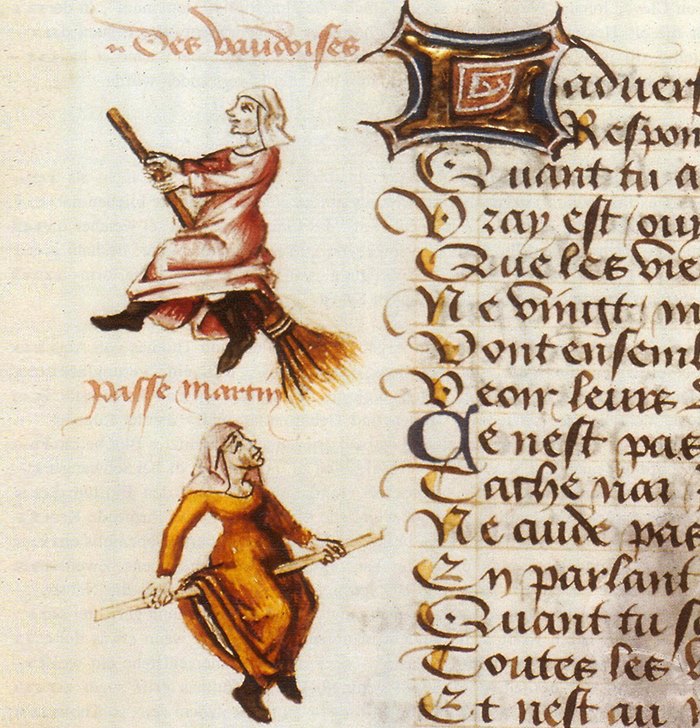 Des vaudoises
passe martin
L aduers
Respon
Quant tu a
Vray est ouy
Que les vie
Ne vingt m
Vont ensemb
Veoir leurs
Ce nest pas
Tache nar
Ne cuide pas
En parlant
Quant tu s
Toutes les
Et nest au